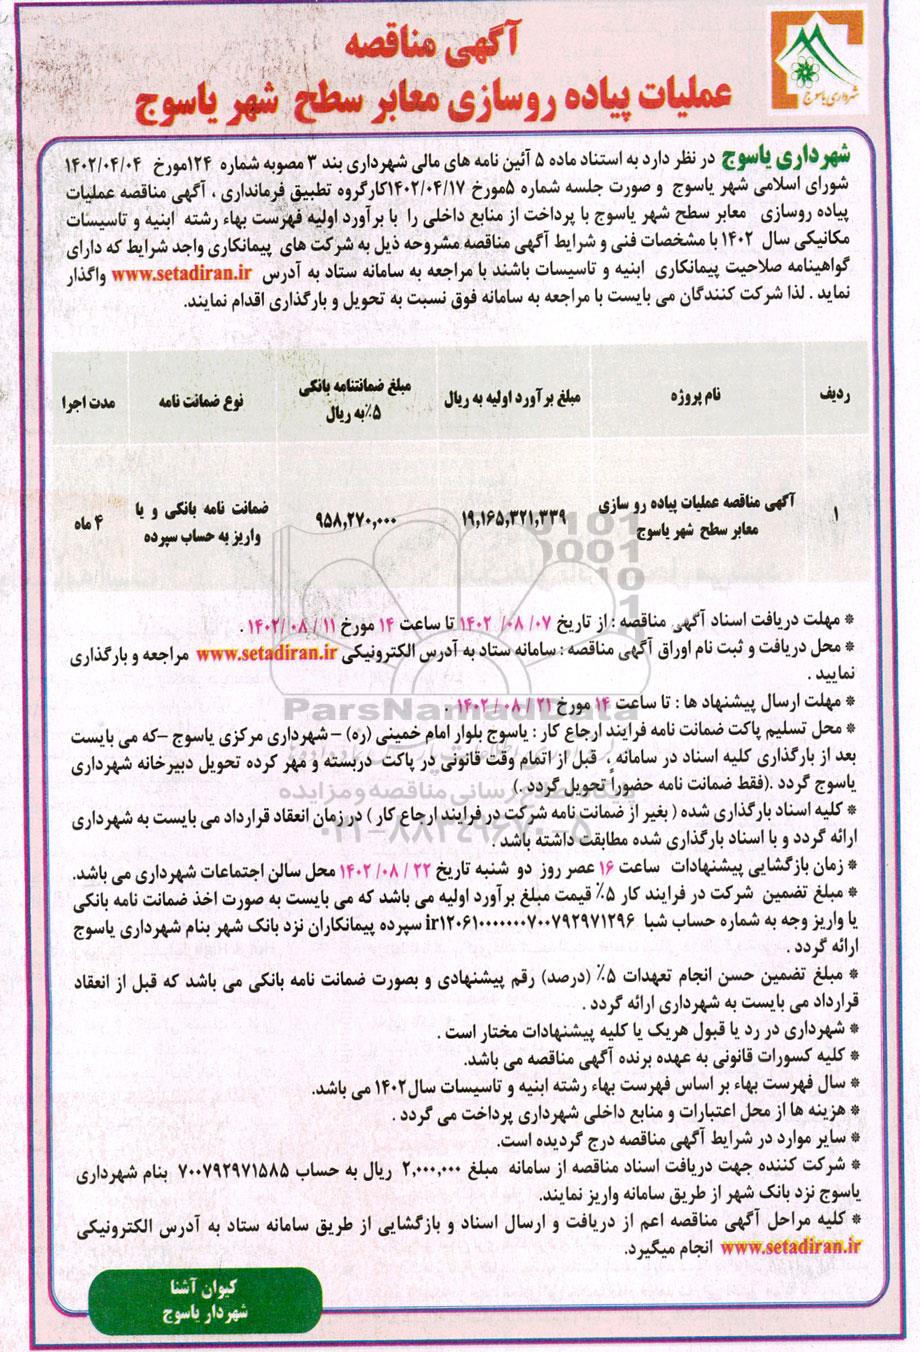 آگهی مناقصه
عملیات پیاده روسازی معابر سطح شهر یاسوج
شهرداری یاسوج
شهرداری یاسوج در نظر دارد به استناد ماده ۵ آئین نامه های مالی شهرداری بند ۳ مصوبه شماره ۱۲۴مورخ ۱۴۰۲/۰۴/۰۴
شورای اسلامی شهر یاسوج و صورت جلسه شماره ۵مورخ ۱۴۰۲/۰۴/۱۷کارگروه تطبیق فرمانداری ، آگهی مناقصه عملیات
پیاده روسازی معابر سطح شهر یاسوج با پرداخت از منابع داخلی را با برآورد اولیه فهرست بهاء رشته ابنیه و تاسیسات
مکانیکی سال ۱۴۰۲ با مشخصات فنی و شرایط آگهی مناقصه مشروحه ذیل به شرکت های پیمانکاری واجد شرایط که دارای
گواهینامه صلاحیت پیمانکاری ابنیه و تاسیسات باشند با مراجعه به سامانه ستاد به آدرس www.setadiran.ir واگذار
نماید . لذا شرکت کنندگان می بایست با مراجعه به سامانه فوق نسبت به تحویل و بارگذاری اقدام نمایند.
ردیف
نام پروژه
مبلغ برآورد اولیه به ریال
مبلغ ضمانتنامه بانکی
۵٪به ریال
نوع ضمانت نامه
مدت اجرا
۱
آگهی مناقصه عملیات پیاده رو سازی
معابر سطح شهر یاسوج
۱۹,۱۶۵,۳۲۱,۳۳۹
۹۵۸,۲۷۰,۰۰۰
ضمانت نامه بانکی و یا
واریز به حساب سپرده
۴ ماه
* مهلت دریافت اسناد آگهی مناقصه : از تاریخ ۰۷ /۰۸/ ۱۴۰۲ تا ساعت ۱۴ مورخ ۱۱ / ۰۸ /۱۴۰۲ .
* محل دریافت و ثبت نام اوراق آگهی مناقصه : سامانه ستاد به آدرس الکترونیکی www.setadiran.ir مراجعه و بارگذاری
نمایید .
* مهلت ارسال پیشنهاد ها : تا ساعت ۱۴ مورخ ۲۱ / ۰۸ / ۱۴۰۲ .
* محل تسلیم پاکت ضمانت نامه فرایند ارجاع کار : یاسوج بلوار امام خمینی (ره) – شهرداری مرکزی یاسوج –که می بایست
بعد از بارگذاری کلیه اسناد در سامانه ، قبل از اتمام وقت قانونی در پاکت دربسته و مهر کرده تحویل دبیرخانه شهرداری
یاسوج گردد .(فقط ضمانت نامه حضوراً تحویل گردد .)
* کلیه اسناد بارگذاری شده ( بغیر از ضمانت نامه شرکت در فرایند ارجاع کار ) در زمان انعقاد قرارداد می بایست به شهرداری
ارائه گردد و با اسناد بارگذاری شده مطابقت داشته باشد .
* زمان بازگشایی پیشنهادات ساعت ۱۶ عصر روز دو شنبه تاریخ ۲۲ / ۰۸/ ۱۴۰۲ محل سالن اجتماعات شهرداری می باشد.
* مبلغ تضمین شرکت در فرایند کار ۵٪ قیمت مبلغ برآورد اولیه می باشد که می بایست به صورت اخذ ضمانت نامه بانکی
یا واریز وجه به شماره حساب شبا سپرده پیمانکاران نزد بانک شهر بنام شهرداری یاسوج
ارائه گردد .
* مبلغ تضمین حسن انجام تعهدات ۵٪ (درصد) رقم پیشنهادی و بصورت ضمانت نامه بانکی می باشد که قبل از انعقاد
قرارداد می بایست به شهرداری ارائه گردد .
* شهرداری در رد یا قبول هریک یا کلیه پیشنهادات مختار است .
* کلیه کسورات قانونی به عهده برنده آگهی مناقصه می باشد.
* سال فهرست بهاء بر اساس فهرست بهاء رشته ابنیه و تاسیسات سال۱۴۰۲ می باشد.
* هزینه ها از محل اعتبارات و منابع داخلی شهرداری پرداخت می گردد .
* سایر موارد در شرایط آگهی مناقصه درج گردیده است.
* شرکت کننده جهت دریافت اسناد مناقصه از سامانه مبلغ ۲,۰۰۰,۰۰۰ ریال به حساب ۷۰۰۷۹۲۹۷۱۵۸۵ بنام شهرداری
یاسوج نزد بانک شهر از طریق سامانه واریز نمایند.
* کلیه مراحل آگهی مناقصه اعم از دریافت و ارسال اسناد و بازگشایی از طریق سامانه ستاد به آدرس الکترونیکی
www.setadiran.ir انجام میگیرد.
کیوان آشنا
شهردار یاسوج
ParsNamadData
۰۲۱-۸۸۳۴۹۶۷۰-۵